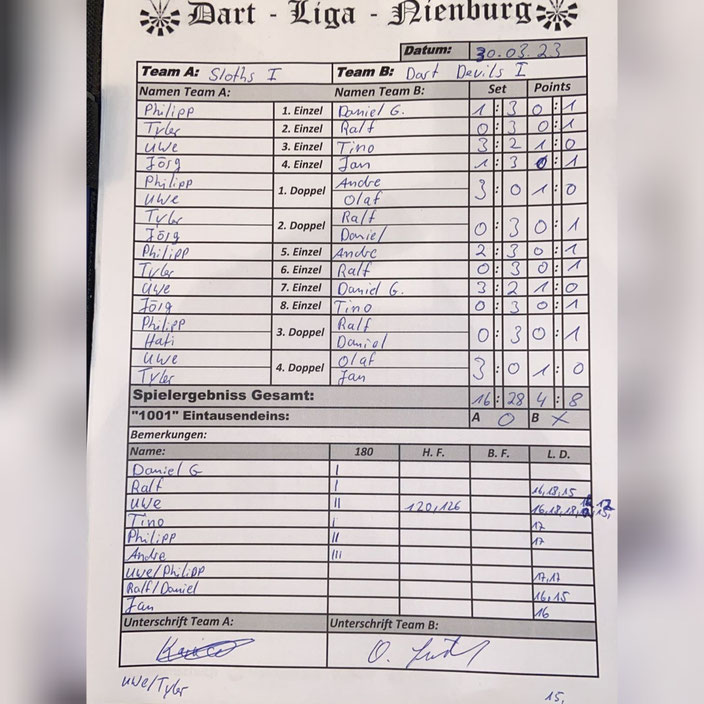 Dart - Liga - Nienburg
Datum: 30.03.23
Team A: Sloths I Team B: Dart Devils I
Namen Team A: Namen Team B: Set Points
Philipp 1. Einzel Daniel G. 1 : 3 0 : 1
Tyler 2. Einzel Ralf 0 : 3 0 : 1
Uwe 3. Einzel Tino 3 : 2 1 : 0
Jörg 4. Einzel Jan 1 : 3 0 : 1
Philipp Andre
1. Doppel 3 : 0 1 : 0
Uwe Olaf
Tyler Ralf
2. Doppel 0 : 3 0 : 1
Jörg Daniel
Philipp 5. Einzel Andre 2 : 3 0 : 1
Tyler 6. Einzel Ralf 0 : 3 0 : 1
Uwe 7. Einzel Daniel G. 3 : 2 1 : 0
Jörg 8. Einzel Tino 0 : 3 0 : 1
Philipp Ralf
3. Doppel 0 : 3 0 : 1
Hati Daniel
Uwe Olaf
4. Doppel 3 : 0 1 : 0
Tyler Jan
Spielergebniss Gesamt: 16 : 28 4 : 8
"1001" Eintausendeins: A O B X
Bemerkungen:
Name: 180 H. F. B. F. L. D.
Daniel G I
Ralf I 16,18,15
Uwe II 120,126 16,18,18,
Tino I 17
Philipp II 17
Andre III
Uwe/Philipp 17,17
Ralf/Daniel 16,15
Jan 16
Unterschrift Team A: Unterschrift Team B:
Uwe/Tyler 15,